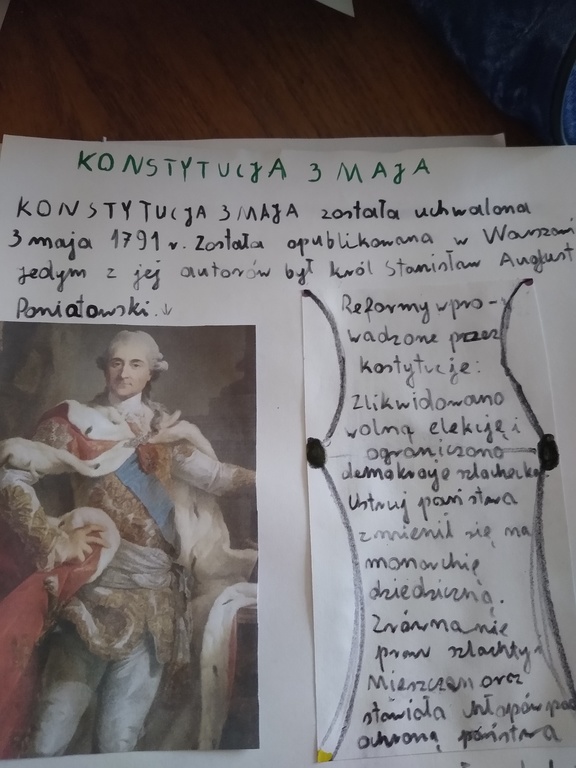 KONSTYTUCJA 3 MAJA
KONSTYTUCJA 3 MAJA została uchwalona
3 maja 1791 r. Została opublikowana w Warszawi
jedym z jej autorów był król Stanisław August
Poniatowski. ↓
Reformy wpro-
wadzone przez
kostytucje:
Zlikwidowano
wolną elekcję i
ograniczono
demokracje szlachecką.
Ustruj państwa
zmienił się na
monarchię
dziedziczną.
Zrównanie
praw szlachty i
Mieszczan oraz
stawiała chłopów pod
ochroną państwa